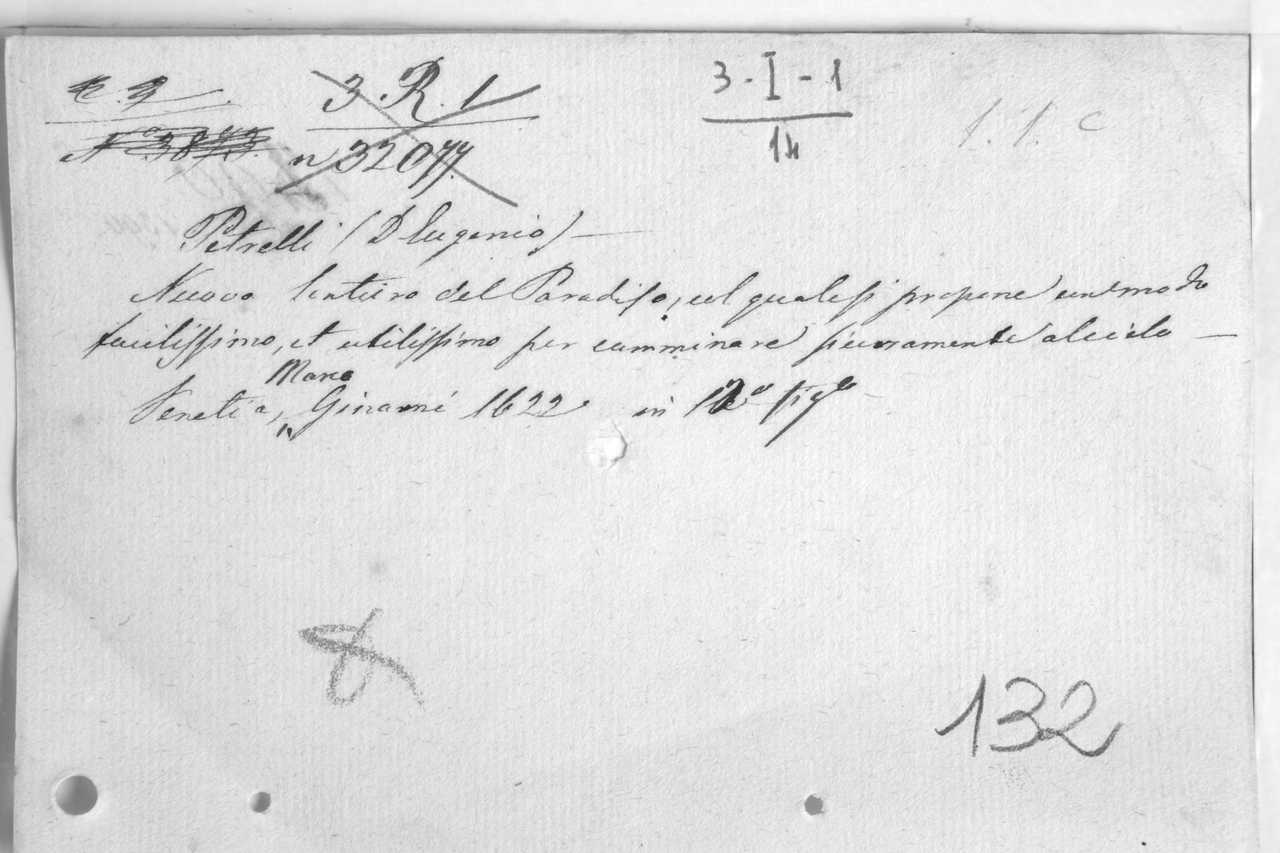 3. R. 1
3 - I - 1
n 32077.
14
1. 1. c
Petrelli (D Eugenio) —
Nuovo Sentiero del Paradiso, col quale si propone un modo
facilissimo, et utilissimo per camminare sicuramente al cielo —
Marco
Venetia, Ginami 1622. in 12º fig
132